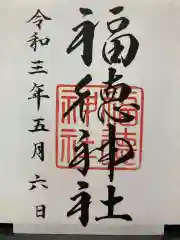 福徳神社
令和三年五月六日
福徳神社